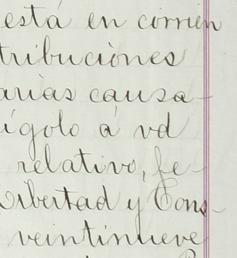 está en corrien
tribuciones
arias causa-
ígolo á vd
relativo, fe-
Libertad y Cons-
veintinueve